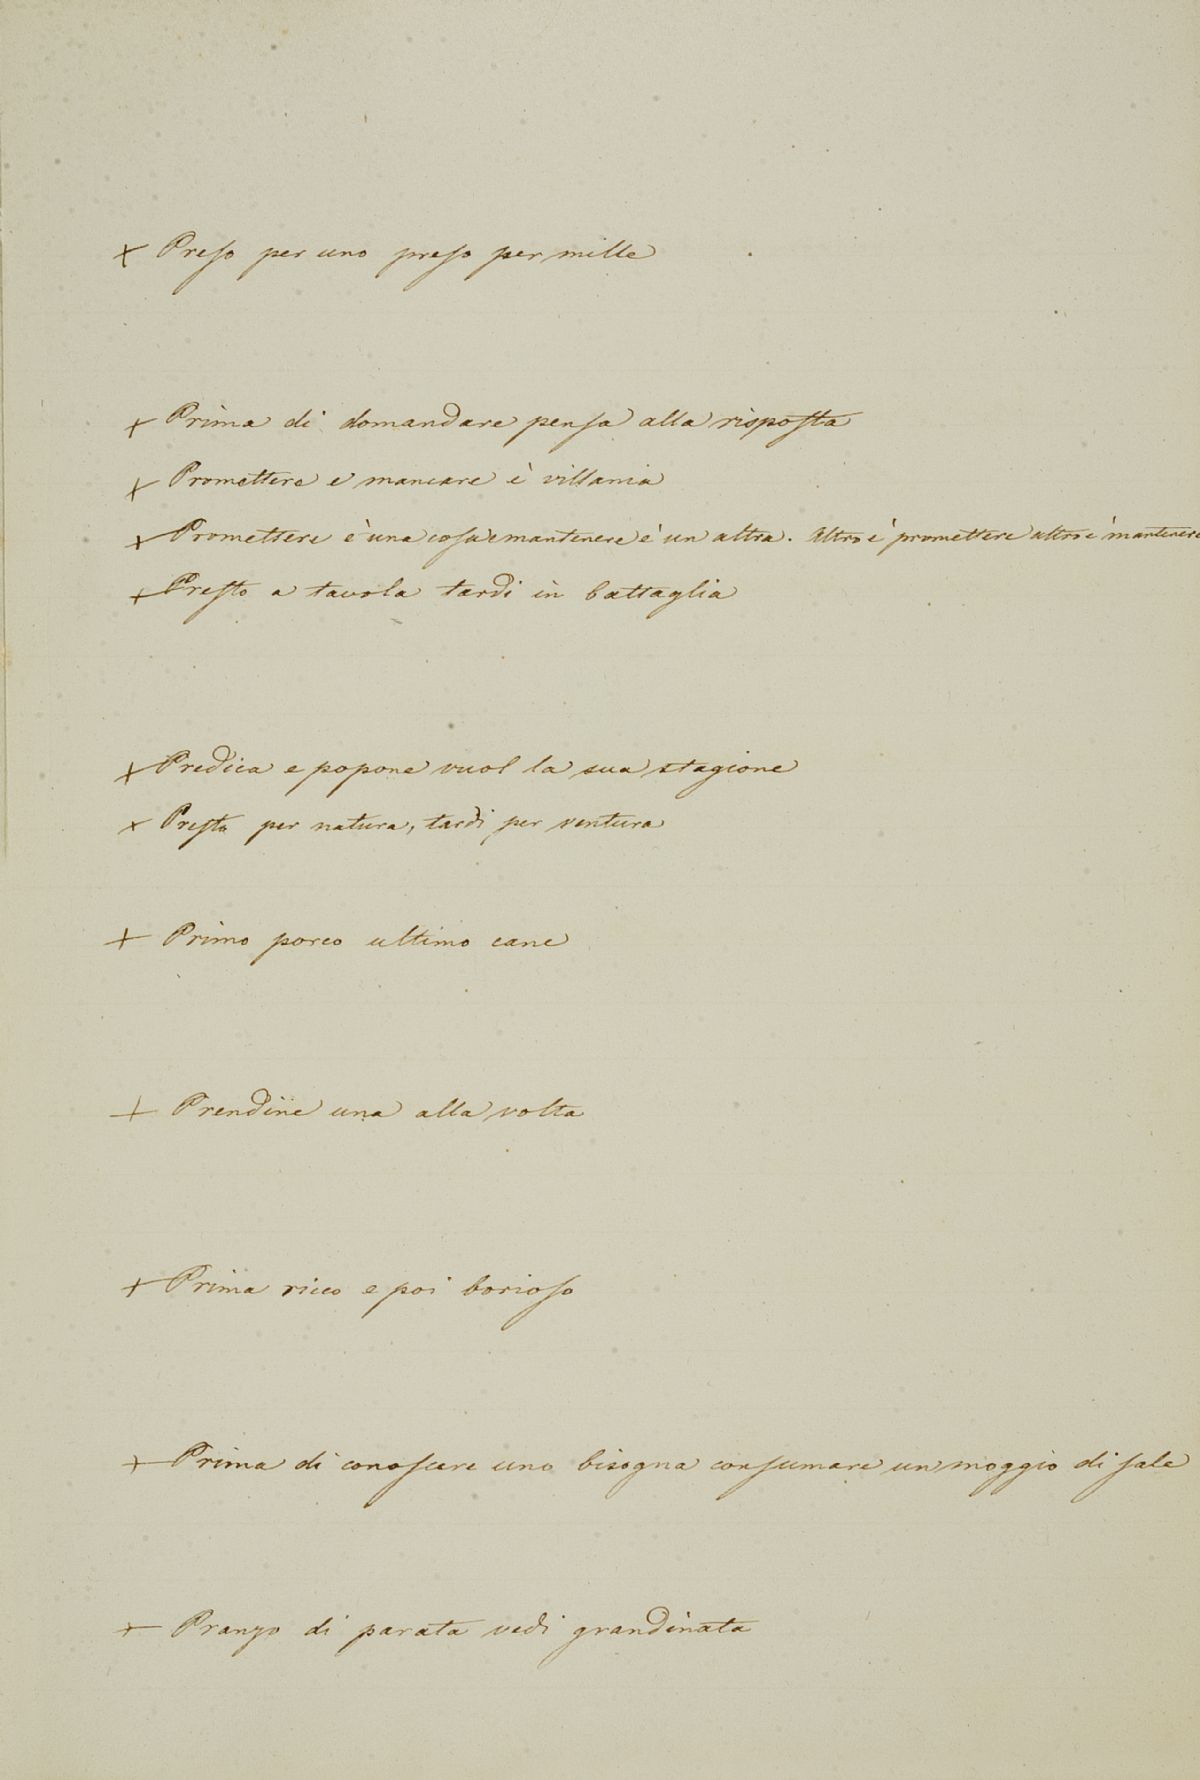 × Preso per uno preso per mille
× Prima di domandare pensa alla risposta
× Promettere e mancare è villania
× Promettere è una cosa e mantenere è un altra. Altro è promettere altro è mantenere
× Presto a tavola tardi in battaglia
× Predica e popone vuol la sua stagione
× Presto per natura, tardi per ventura
× Primo porco ultimo cane
× Prendine una alla volta
× Prima ricco e poi borioso
× Prima di conoscere uno bisogna consumare un moggio di sale
× Pranzo di parata vedi grandinata